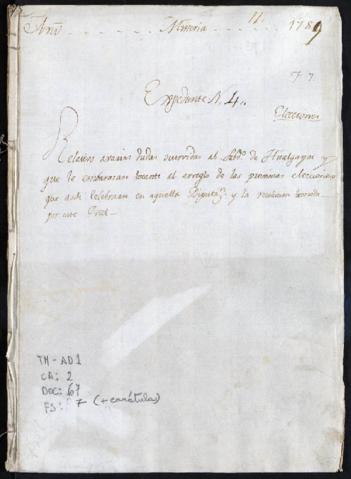 Mineria 11. 1789
77
Expediente N. 4.
Elecciones
Relativo a varias dudas ocurridas al de Hualgayoc y
que le embarazan tocante al arreglo de las proximas elecciones
que deve celebrar en aquella Diputa.n y la resolucion tomada
por este
TM-AD1
CA: 2
DOC: 67
FS: 7 (+ carátula)